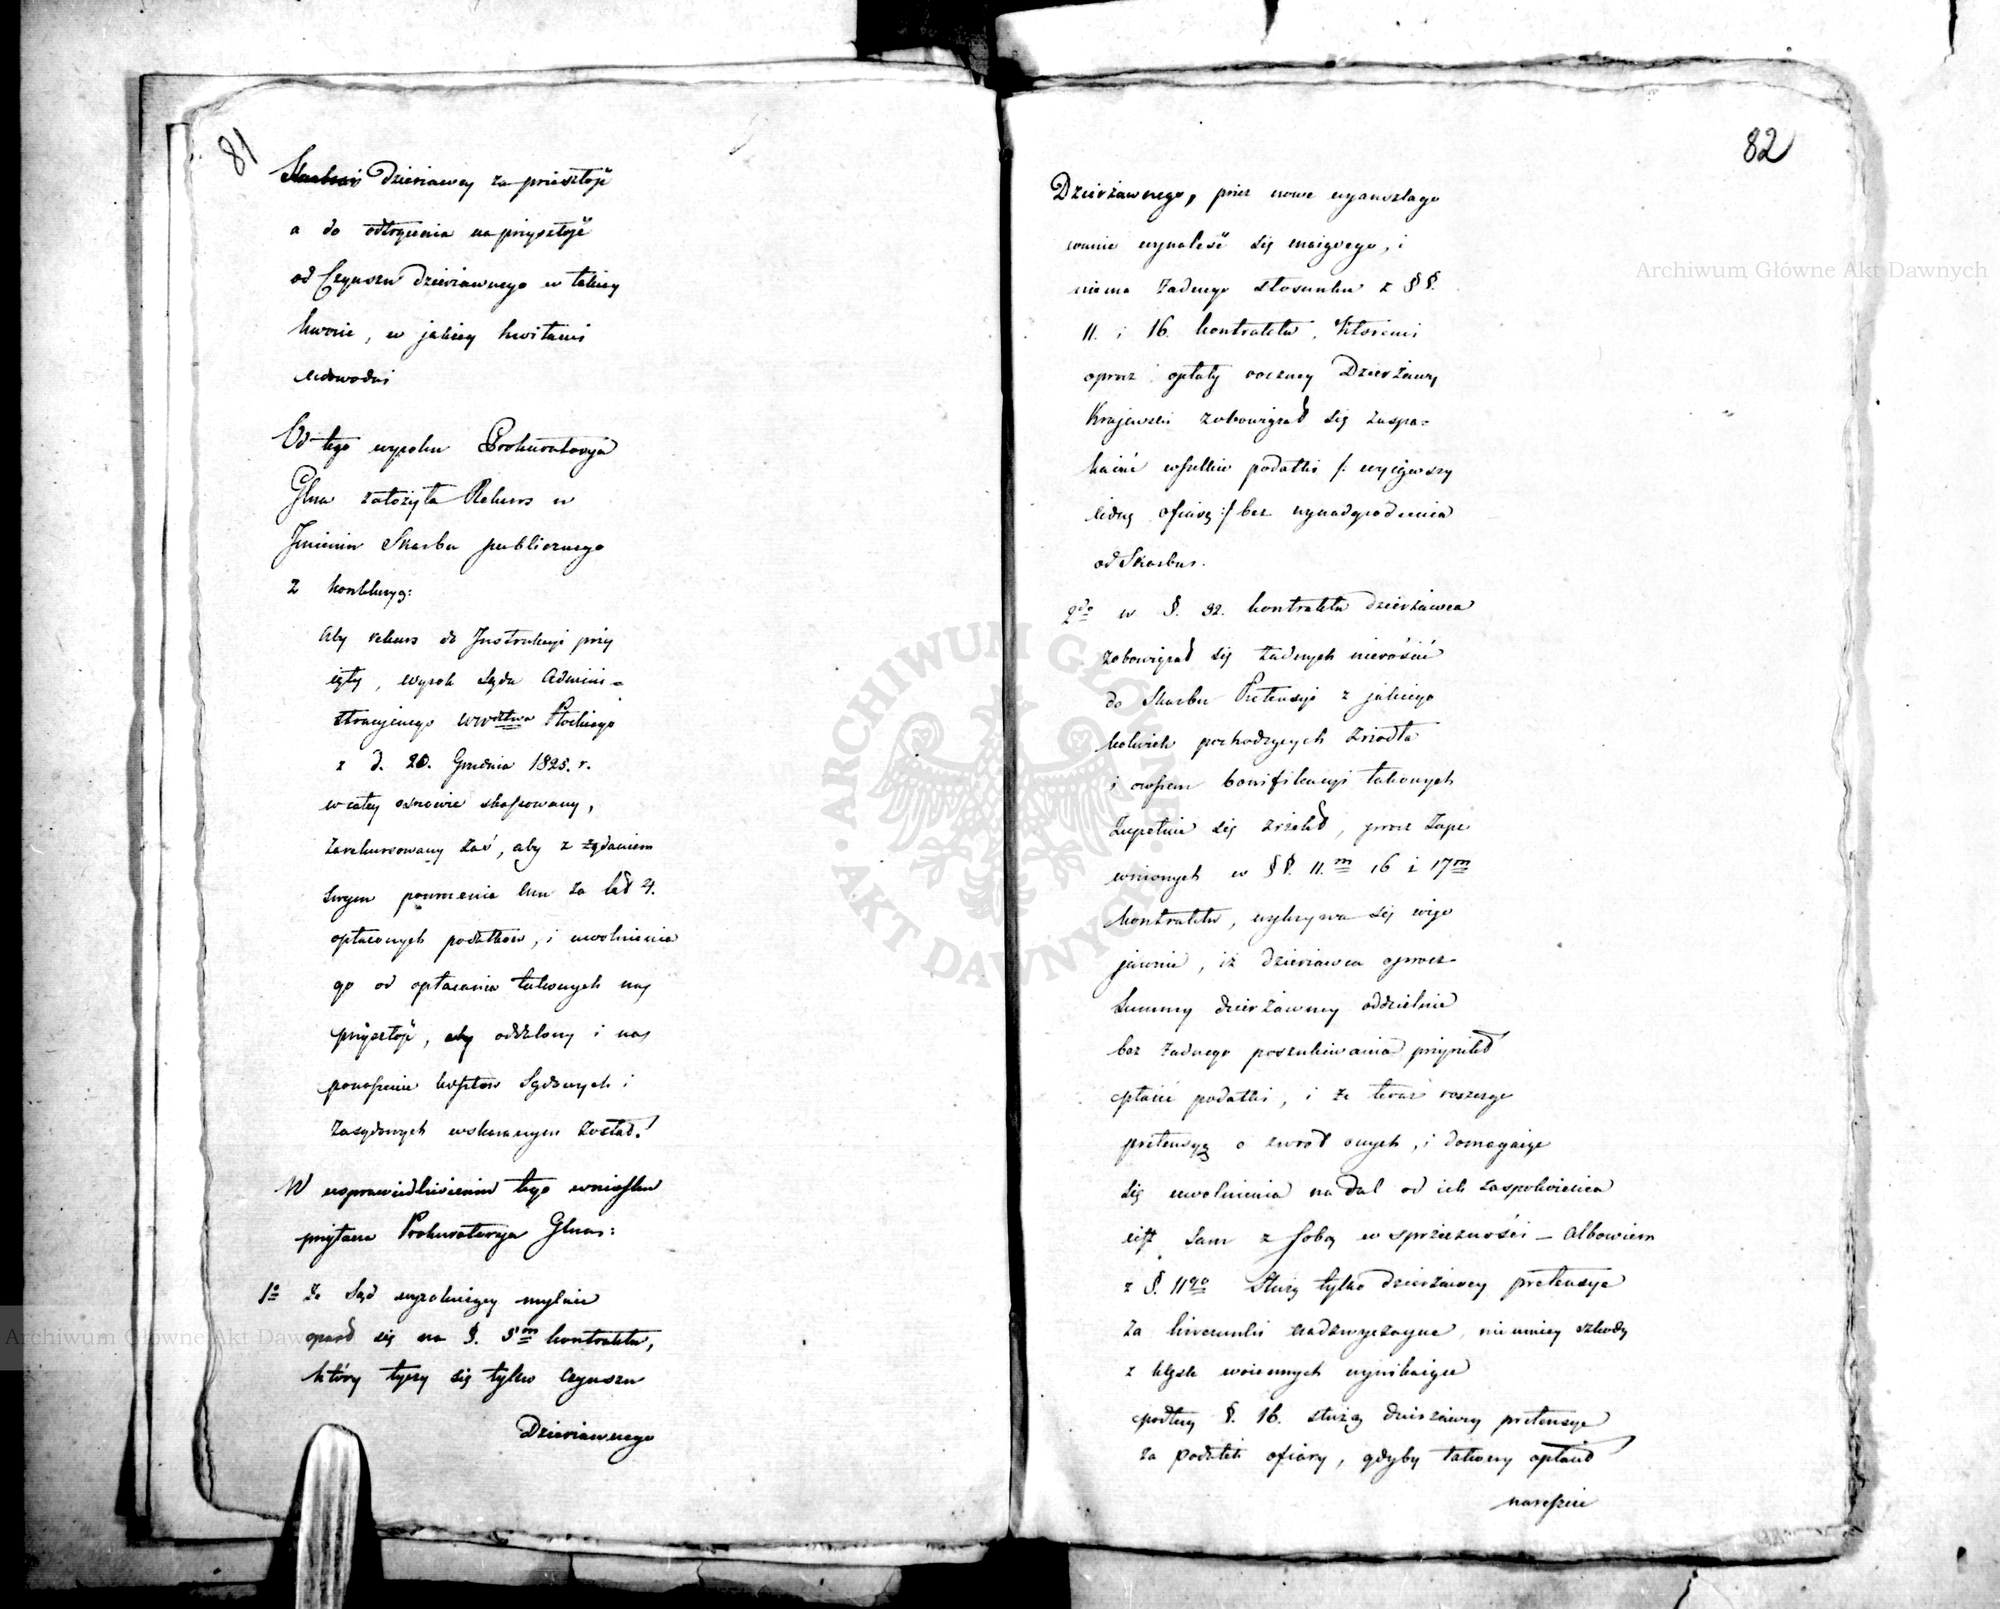 81
Dzierżawcy za przeszłość
a do odtrącenia na przyszłość
od Czynszu dzierżawnego w takiej
kwocie, w jakiej kwitami
udowodni
Od tego wyroku Prokuratorja
Glna założyła Rekurs w
Imieniu Skarbu publicznego
z konkluzyą:
Aby rekurs do Instrukcyi przy
ięty, wyrok Sądu Admini=
stracyjnego Wwdztwa Płockiego
z d. 20. Grudnia 1825. r.
w całey osnowie skassowany,
Zarekursowany zaś, aby z żądaniem
swym powrócenia mu za lat 4.
opłaconych podatków, i uwolnienia
go od opłacania takowych na
przyszłość, aby oddalony i na
ponoszenie kosztów Sądowych i
Zasądowych wskazanym został.
W usprawiedliwieniu tego wniosku
przytacza Prokuratorya Glna:
1o Że Sąd wyrokuiący mylnie
oparł się na §. 5m kontraktu,
który tyczy się tylko Czynszu
Dzierżawnego
82
Dzierżawnego, przez nowe
wanie wynaleść się maiącego, i
niema żadnego stosunku z §§.
11. i 16. kontraktu, któremi
oprócz opłaty roczney Dzierżawy
Krajewski zobowiązał się zaspa=
kaiać wszelkie podatki /: wyiąwszy
iedną ofiarę :/ bez wynadgrodzenia
od Skarbu.
2do w §. 32. kontraktu dzierżawca
zobowiązał się żadnych nierościć
do Skarbu Pretensyi z jakiego
kolwiek pochodzących źrzódła
i owszem bonifikacyi takowych
Zupełnie się zrzekł, prócz zape
wnionych w §§. 11.m 16 i 17m
kontraktu, wykrywa się więc
jawnie, iż dzierżawca oprócz
Summy dzierżawney oddzielnie
bez żadnego poszukiwania przyrzekł
płacić podatki, i że teraz roszcząc
pretensyą o zwrot onych, i domagaiąc
się uwolnienia nadal od ich zaspokoienia
iest sam z sobą w sprzeczności – Albowiem
z §. 11go służą tylko dzierżawcy pretensye
za liwerunki nadzwyczayne, niemniey szkody
z klęsk woiennych wynikaiące
podług §. 16. służą dzierżawcy pretensye
za podatek ofiary, gdyby takowy opłacił
nareszcie
Archiwum Główne Akt Dawnych
ARCHIWUM GŁÓWNE · AKT DAWNYCH ·
Archiwum Główne Akt Dawnych